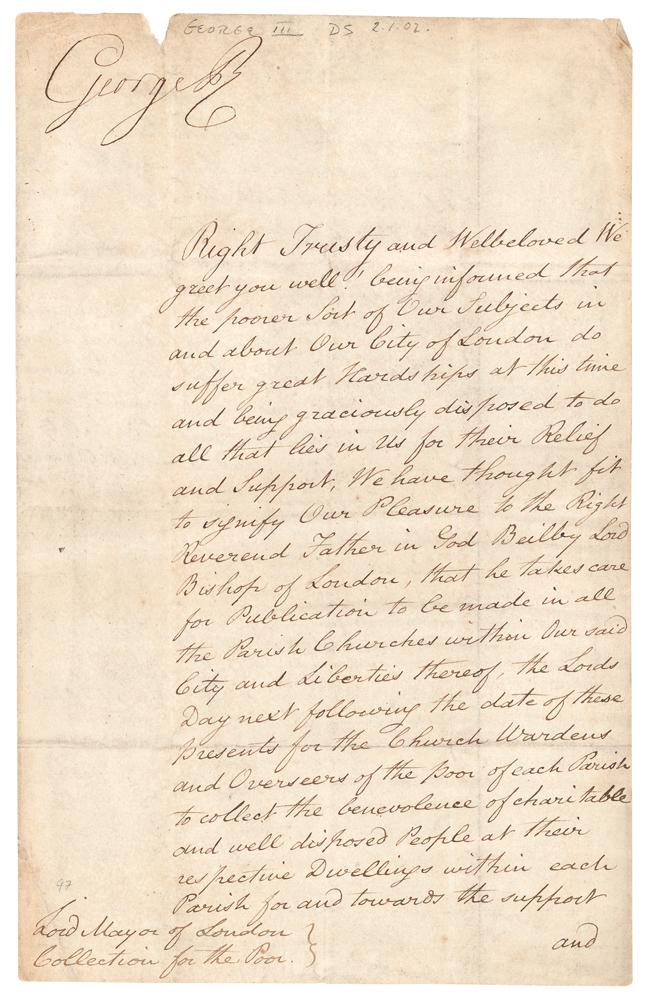 GEORGE III DS 2.1.02.
George R
Right Trusty and Welbeloved We
greet you well! being informed that
the poorer Sort of Our Subjects in
and about Our City of London do
suffer great Hardships at this time
and being graciously disposed to do
all that lies in Us for their Relief
and Support, We have thought fit
to signify Our Pleasure to the Right
Reverend Father in God Beilby Lord
Bishop of London, that he takes care
for Publication to be made in all
the Parish Churches within Our said
City and Liberties thereof, the Lords
Day next following the date of these
presents for the Church Wardens
and Overseers of the poor of each Parish
to collect the benevolence of charitable
and well disposed People at their
respective Dwellings within each
Parish for and towards the support
and
97
Lord Mayor of London
Collection for the Poor.